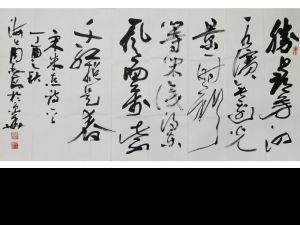 勝日尋芳泗
水濱無邊光
景一時新
等閑識得東
風面萬紫
千紅總是春
宋朱熹詩
丁酉之秋
海上周